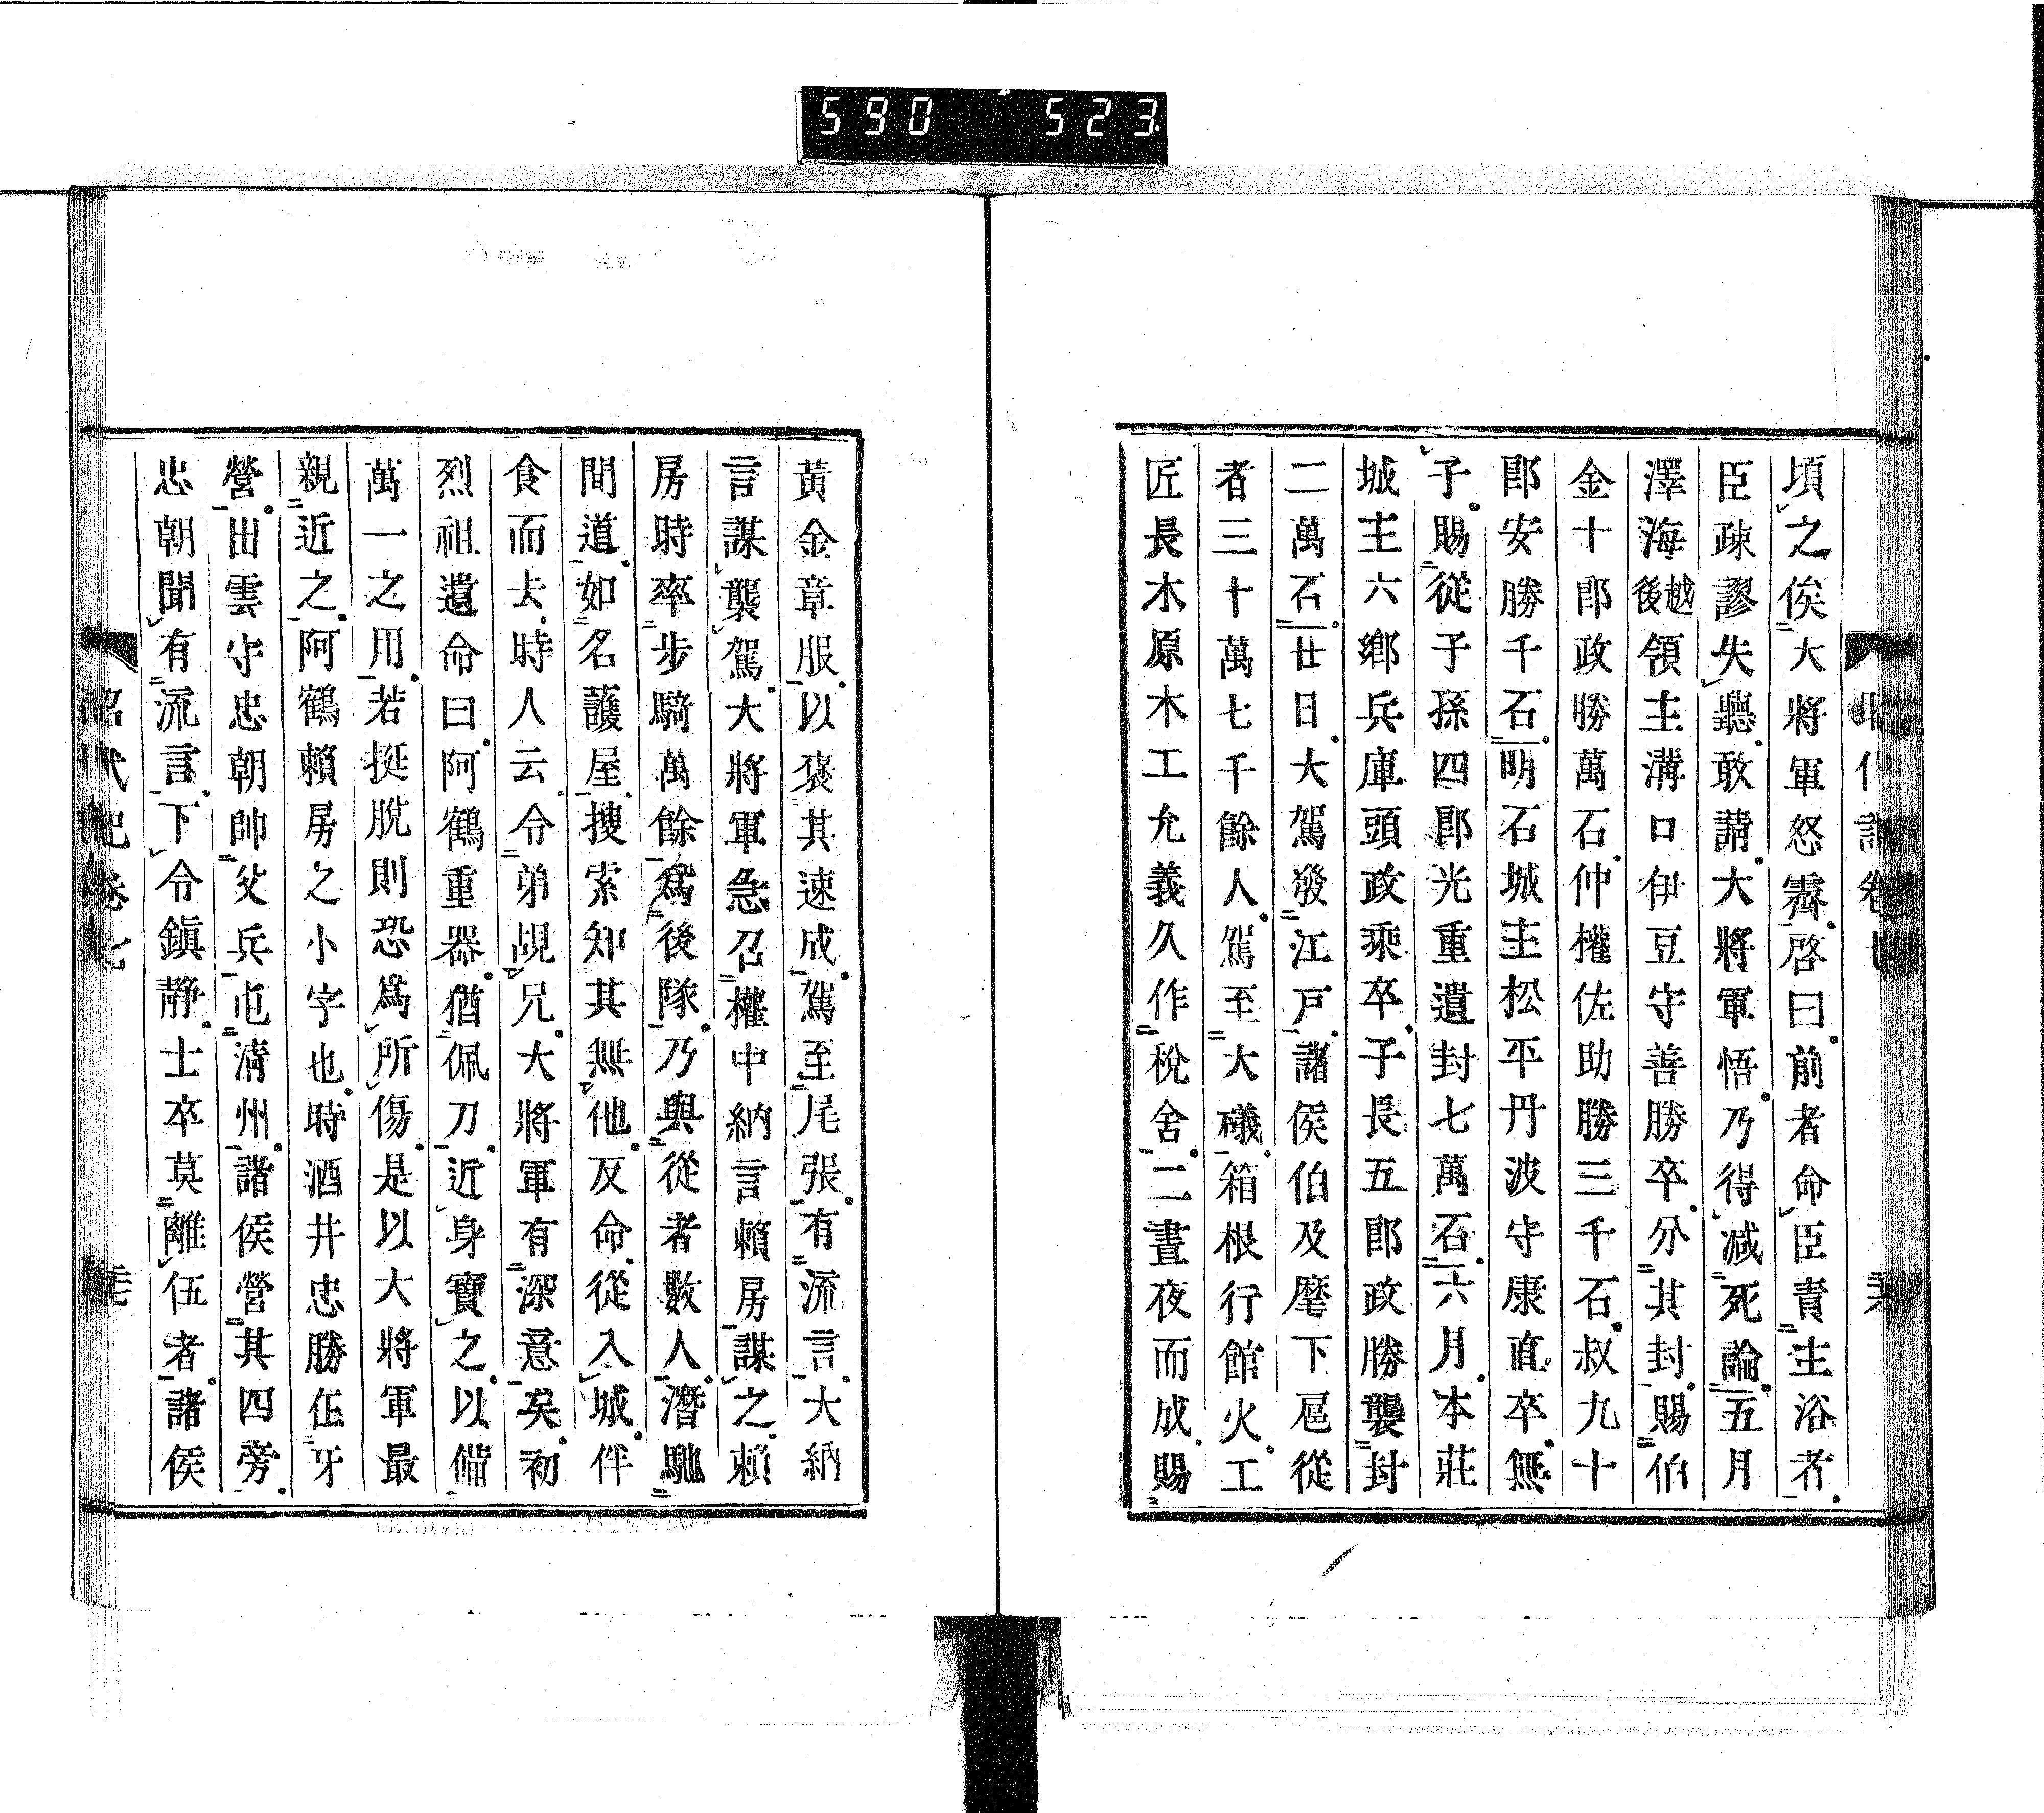 590 523
頃之俟大將軍怒霽啓曰前者命臣責主浴者
臣疎謬失聽敢請大將軍悟乃得減死論五月
澤海越後領主溝口伊豆守善勝卒分其封賜伯
金十郎政勝萬石仲權佐助勝三千石叔九十
郎安勝千石明石城主松平丹波守康直卒無
子賜從子孫四郎光重遺封七萬石六月本莊
城主六鄉兵庫頭政乘卒子長五郎政勝襲封
二萬石廿日大駕發江戶諸侯伯及麾下扈從
者三十萬七千餘人駕至大礒箱根行館火工
匠長木原木工允義久作稅舍二晝夜而成賜
黃金章服以褒其速成駕至尾張有流言大納
言謀襲駕大將軍急召權中納言賴房謀之賴
房時率步騎萬餘爲後隊乃與從者數人潛馳
間道如名護屋搜索知其無他反命從入城伴
食而去時人云令弟覘兄大將軍有深意矣初
烈祖遺命曰阿鶴重器猶佩刀近身寶之以備
萬一之用若挺脫則恐爲所傷是以大將軍最
親近之阿鶴賴房之小字也時酒井忠勝在牙
營出雲守忠朝帥父兵屯淸州諸侯營其四旁
忠朝聞有流言下令鎭靜士卒莫離伍者諸侯
昭代記卷七